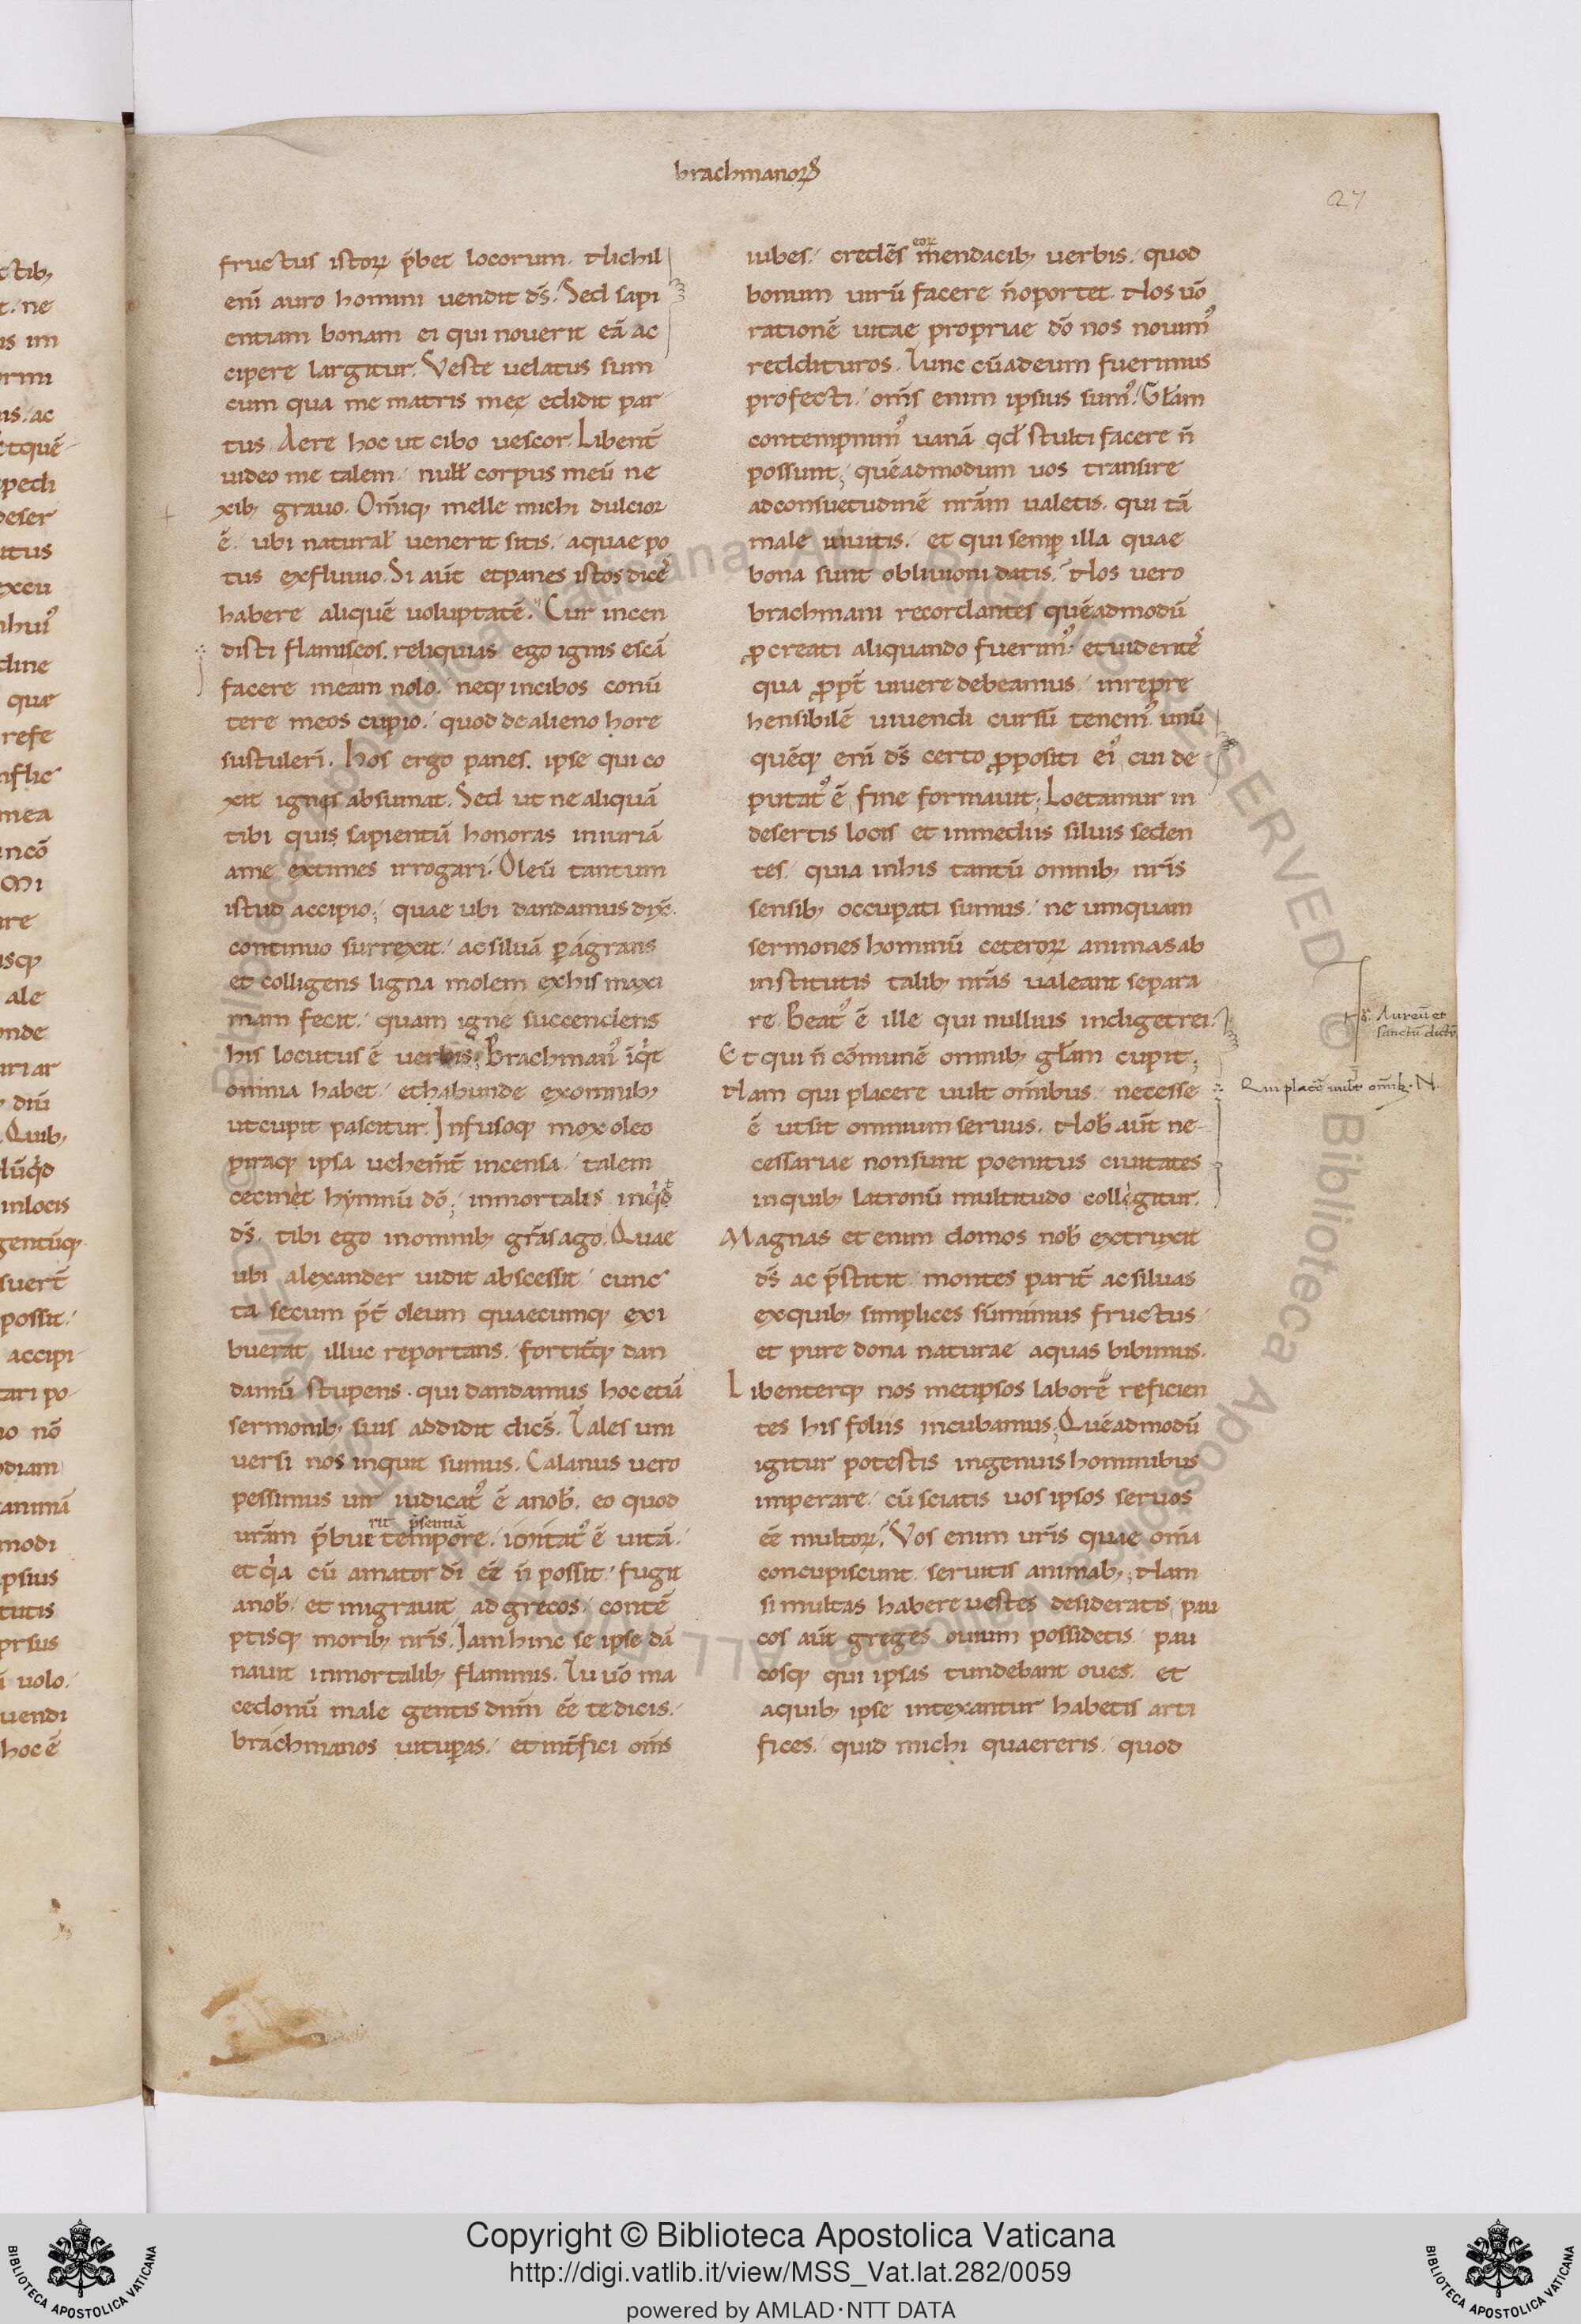 brachmanoꝝ
27
fructus istoꝝ p̄bet locorum. Nichil
eni̅ auro homini uendit ds̅. Sed sapi
entiam bonam ei qui nouerit eā ac
cipere largitur. Veste uelatus sum
cum qua me matris meę edidit par
tus. Aere hoc ut cibo uescor. Libent̅
uideo me talem. null̅ corpus meū ne
xib; grauo. Om̅iq; melle michi dulcior
ē. ubi natural̅ uenerit sitis. aquae po
tus exfluuio. Si aūt et panes istos dicer̅
habere aliquē uoluptatē. Cur incen
disti flamiscos. reliquias ego ignis escā
facere meam nolo. neq; incibos conū
tere meos cupio. quod de alieno hore
sustuleri̅. Hos ergo panes. ipse qui co
xit ignis absumat. Sed ut ne aliquā
tibi quis sapientū honoras iniuriā
ame extimes irrogari. Oleū tantum
istud accipio; quae ubi dandamus dix̅.
continuo surrexit. ac siluā ꝑagrans
et colligens ligna molem exhis maxi
mam fecit. quam igne succendens
his locutus ē uerbis; Brachman᾽ iq̅t
omnia habet. et habunde exomnib;
ut cupit pascitur. Infusoq; mox oleo
piraq; ipsa uehem̅t̅ incensa. talem
cecinet hymnū dō; inmortalis inq̅d
ds̅. tibi ego inomnib; gr̅as ago. Quae
ubi alexander uidit abscessit. cunc
ta secum p̄t̅ oleum quaecumq; exi
buerat illuc reportans. fortit̅q; dan
damū stupens. qui dandamus hoc etiā
sermonib; suis addidit dices̅. Tales uni
uersi nos inquit sumus. Calanus uero
pessimus uir iudicat᾽ ē anob̅. eo quod
rit p̄sentiā
ur̅am p̄bue tempore. imitat᾽ ē uitā.
et q̅a cū amator di̅ eē n̅ possit. fugit
anob̅. et migrauit ad grecos. contē
ptisq; morib; nr̅is. Iam hinc se ipse dā
nauit inmortalib; flammis. Tu uō ma
cedonū male gentis dnm̅ eē te dicis.
brachmanos uituꝑas. et int̅fici om̅s
eoꝝ
iubes. credēs mendacib; uerbis. quod
bonum uirū facere n̅oportet. Nos uō
rationē uitae propriae dō nos nouim᾽
reddituros. Tunc cū adeum fuerimus
profecti. om̅s enim ipsius sum᾽. Gl̅am
contempnim᾽ uanā qd̅ stulti facere n̅
possunt; quēadmodum uos transire
adconsuetudinē nr̅am ualetis. qui tā
male uiuitis. et qui semꝑ illa quae
bona sunt obliuioni datis. Nos uero
brachmani recordantes quēadmodū
ꝓcreati aliquando fuerim᾽. et uident̅es
qua ꝓpt̅ uiuere debeamus. inrepre
hensibilē uiuendi cursū tenem᾽. unū
quēq; eni̅ ds̅ certo ꝓpositi ei᾽ cui de
putat᾽ ē fine formauit. Loetamur in
desertis locis et inmediis siluis seden
tes. quia inhis tantū omnib; nr̅is
sensib; occupati sumus. ne umquam
sermones hominū ceteroꝝ animas ab
institutis talib; nr̅as ualeant separa
re. Beat᾽ ē ille qui nullius indiget rei.
Et qui n̅ cōmunē omnib; gl̅am cupit;
Nam qui placere uult om̅ibus. necesse
ē ut sit omnium seruus. Nob̅ aūt ne
cessariae non sunt poenitus ciuitates
inquib; latronū multitudo colligitur.
Magnas et enim domos nob̅ extruxit
ds̅ ac p̄stitit. montes parit̅ ac siluas
exquib; simplices sūmimus fructus.
et pure dona naturae aquas bibimus.
Libenterq; nos metipsos laborē reficien
tes his foliis incubamus; Quēadmodū
igitur potestis ingenuis hominibus
imperare. cū sciatis uos ipsos seruos
eē multoꝝ. Vos enim ur̅is quae om̅ia
concupiscunt. seruitis animab; Nam
si multas habere uestes desideratis. pau
cos aūt greges ouium possidetis. pau
cosq; qui ipsas tundebant oues. et
aquib; ipse intexantur habetis arti
fices. quid michi quaereris. quod
Aureū et
sanctū dictū.
Qui placē uult om̅ib;. N.
Copyright © Biblioteca Apostolica Vaticana
http://digi.vatlib.it/view/MSS_Vat.lat.282/0059
powered by AMLAD·NTT DATA
BIBLIOTECA APOSTOLICA VATICANA
BIBLIOTECA APOSTOLICA VATICANA